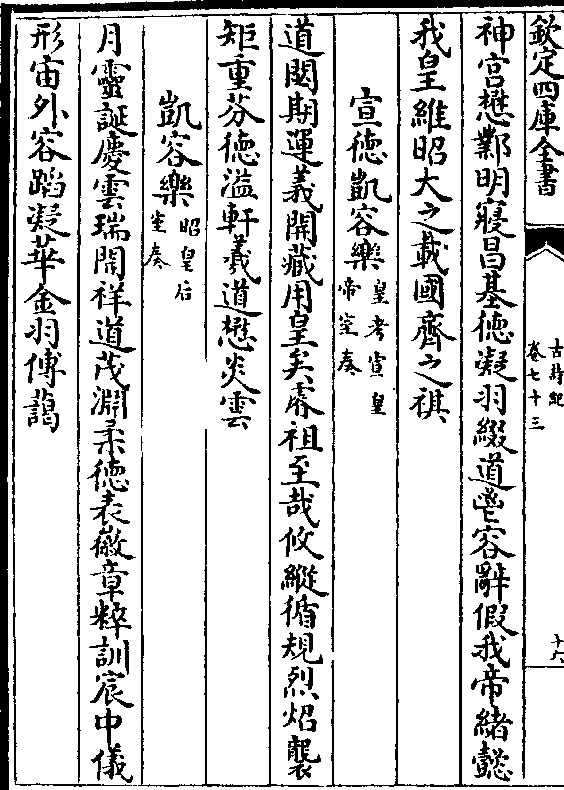 欽定四庫全書
古詩紀
卷七十三
十六
神宫懋鄴明寢昌基德凝羽綴道鬯容辭假我帝緒懿
我皇維昭大之載國齊之祺
宣德凱容樂皇考宣皇
帝室奏
道閟期運義開藏用皇矣睿祖至哉攸縱循規烈炤襲
矩重芬德溢軒羲道懋炎雲
凱容樂昭皇后
室奏
月靈誕慶雲瑞開祥道茂淵柔德表徽章粹訓宸中儀
形宙外容蹈凝華金羽傳藹